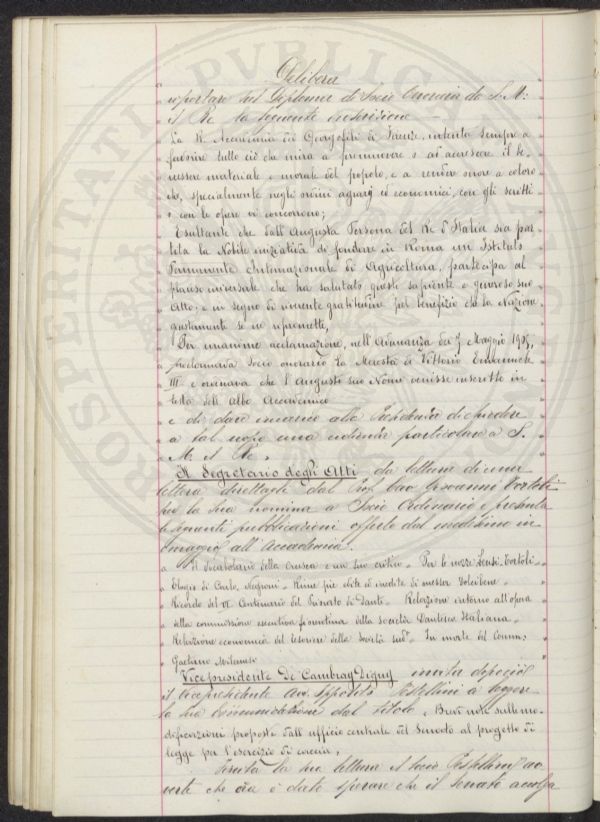 Delibera
riportare sul Diploma di Socio Onorario da S. M:
il Re la seguente iscrizione
La R. Accademia dei Georgofili di Firenze, intenta sempre a
favorire tutto ciò che mira a promuovere e ad accrescere il be-
nessere materiale e morale del popolo, e a rendere onore a coloro
che, specialmente negli ordini agrarj ed economici, con gli scritti
e con le opere vi concorrono;
Esultante che dall'Augusta Persona del Re d'Italia sia par-
tita la Nobile iniziativa di fondare in Roma un Istituto
Permanente Internazionale di Agricoltura, partecipa al
plauso universale che ha salutato questo sapiente e generoso suo
Atto, e in segno di riverente gratitudine pel benefizio che la Nazione
giustamente se ne ripromette,
Per unanime acclamazione, nell'Adunanza del 7 Maggio 1905,
proclamava Socio onorario la Maestà di Vittorio Emanuele
III e ordinava che l'Augusto suo Nome venisse inscritto in
testa dell'Albo Accademico
e di dare incarico alla Presidenza di chiedere
a tal uopo una udienza particolare a S.
M. il Re.
Il Segretario degli Atti da lettura di una
lettera direttagli dal Prof. Cav. Giovanni Tortoli
per la sua nomina a Socio Ordinario e presenta
le seguenti pubblicazioni offerte dal medesimo in
omaggio all'Accademia.
Il Vocabolario della Crusca e un suo critico - Per le nozze Tortoli -
Elogio di Carlo Negroni - Rime pie edite ed inedite di messer Dolcibene -
Ricordo del VI Centenario del Priorato di Dante - Relazione intorno all'opera
della commissione esecutiva fiorentina della Società Dantesca Italiana -
Relazione economica del tesoriere della Società sudª - In morte del Comm.
Gaetano Milanesi
Vicepresidente De Cambray Digny invita dipoi
il vicepresidente Avv. Ippolito Pestellini a leggere
la sua Comunicazione dal titolo "Brevi note sulle mo-
dificazioni proposte dall'ufficio centrale del Senato al progetto di
legge per l'esercizio di caccia"
la sua lettura il Socio Pestellini av
verte che ora è dato sperare che il Senato accolga